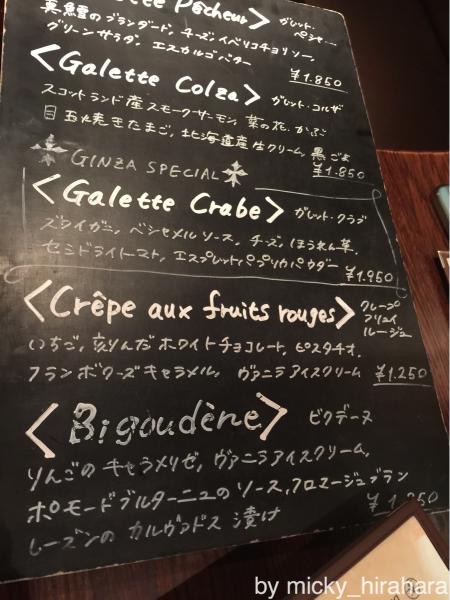 Pêcheur> ガレット・
ペシャ
真鱈のブランダード, チーズ, イベリコチョリソー,
グリーンサラダ, エスカルゴバター
¥1.850
<Galette Colza> ガレット・コルザ
スコットランド産スモークサーモン, 菜の花, かぶ
目玉焼きたまご, 北海道産生クリーム, 黒ごま
¥1.850
GINZA SPECIAL
<Galette Crabe> ガレット・クラブ
ズワイガニ, ベシャメルソース, チーズ, ほうれん草,
セミドライトマト, エスプレットパプリカパウダー
¥1.950
<Crêpe aux fruits rouges> クレープ
フリュイ
ルージュ
いちご, 刻んだホワイトチョコレート, ピスタチオ,
フランボワーズキャラメル, ヴァニラアイスクリーム ¥1.250
<Bigoudène> ビグデーヌ
りんごのキャラメリゼ, ヴァニラアイスクリーム,
ポモードブルターニュのソース, フロマージュブラン
レーズンのカルヴァドス漬け
by micky_hirahara